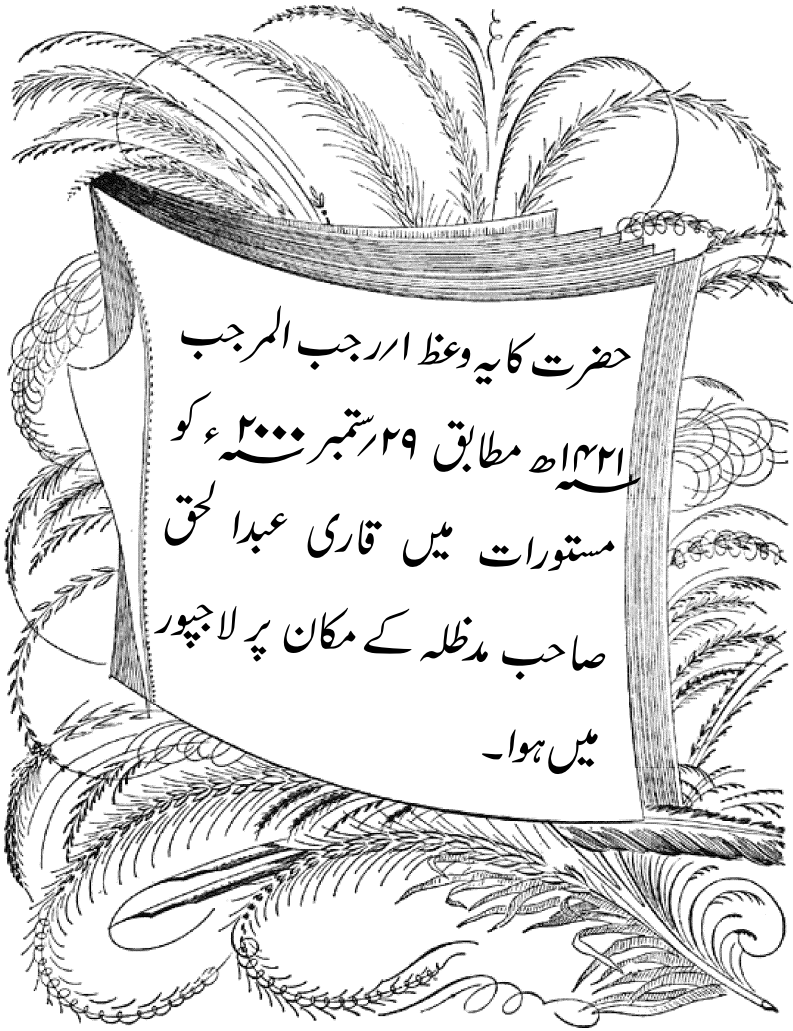 حضرت کا یہ وعظ ۱/رجب المرجب
۱۴۲۱ھ مطابق ۲۹/ستمبر ۲۰۰۰ء کو
مستورات میں قاری عبدالحق
صاحب مدظلہ کے مکان پر لاجپور
میں ہوا۔